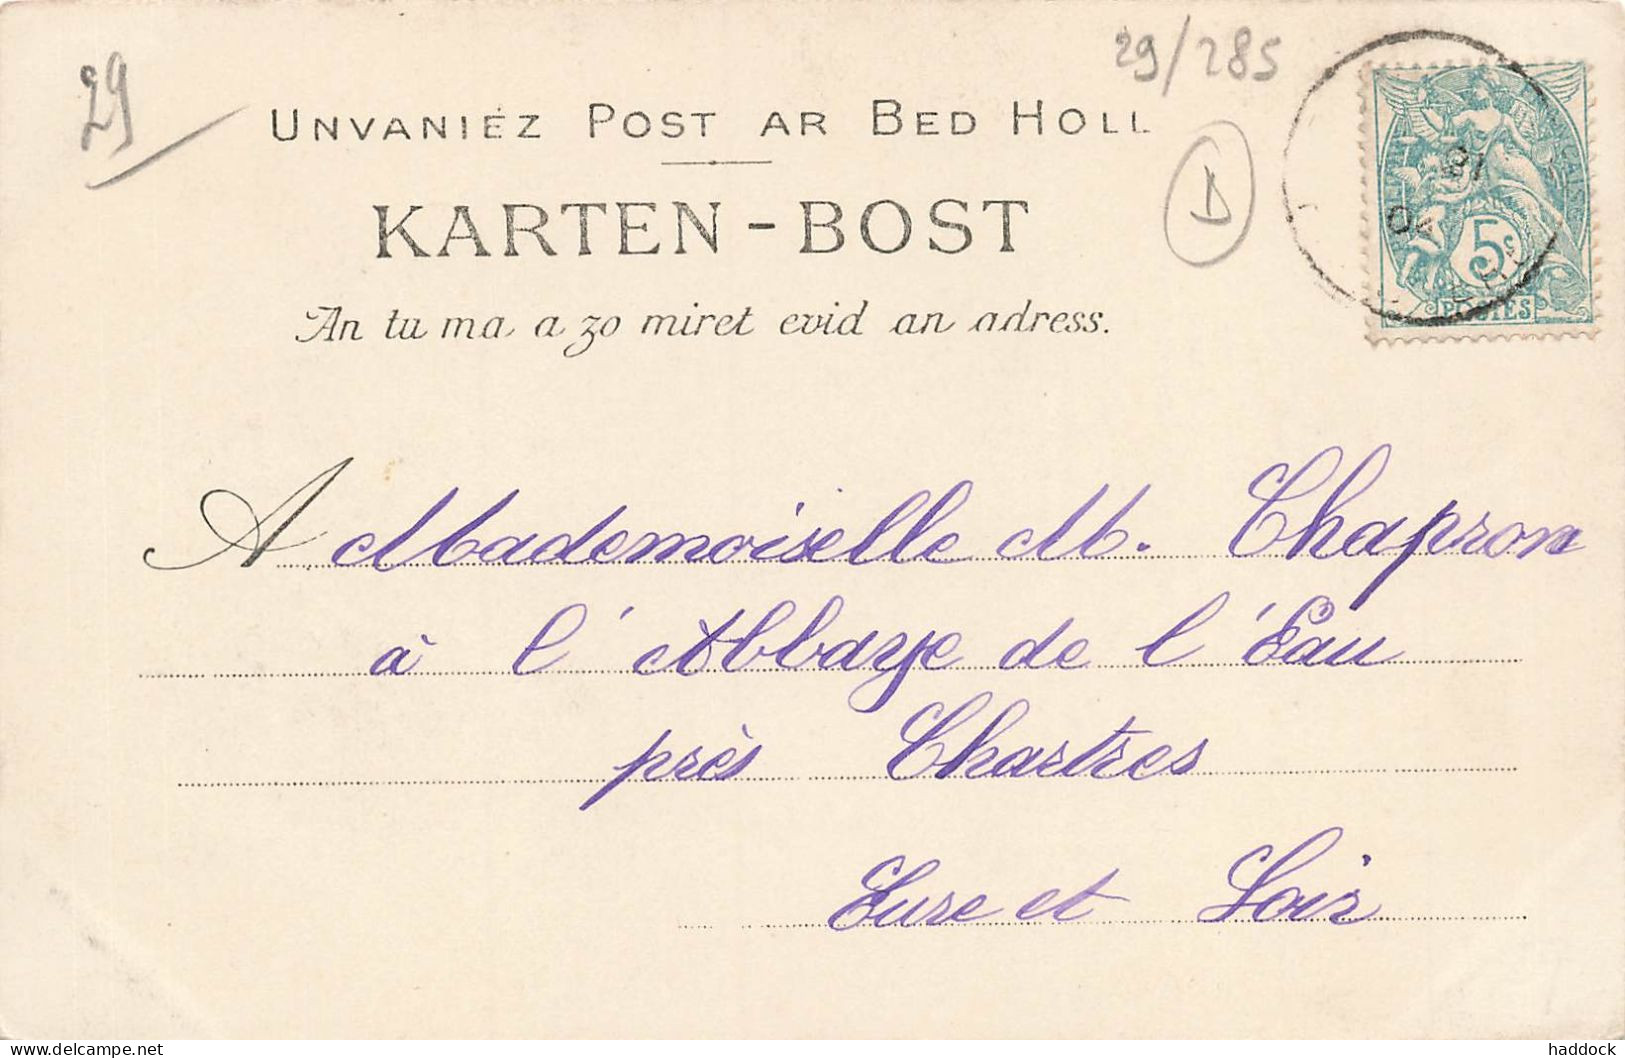 29
29/285
UNVANIÉZ POST AR BED HOLL
KARTEN-BOST
D
An tu ma a zo miret evid an adress.
5c
POSTES
04
A Mademoiselle M. Chapron
à l'Abbaye de l'Eau
près Chartres
Eure et Loir
haddock